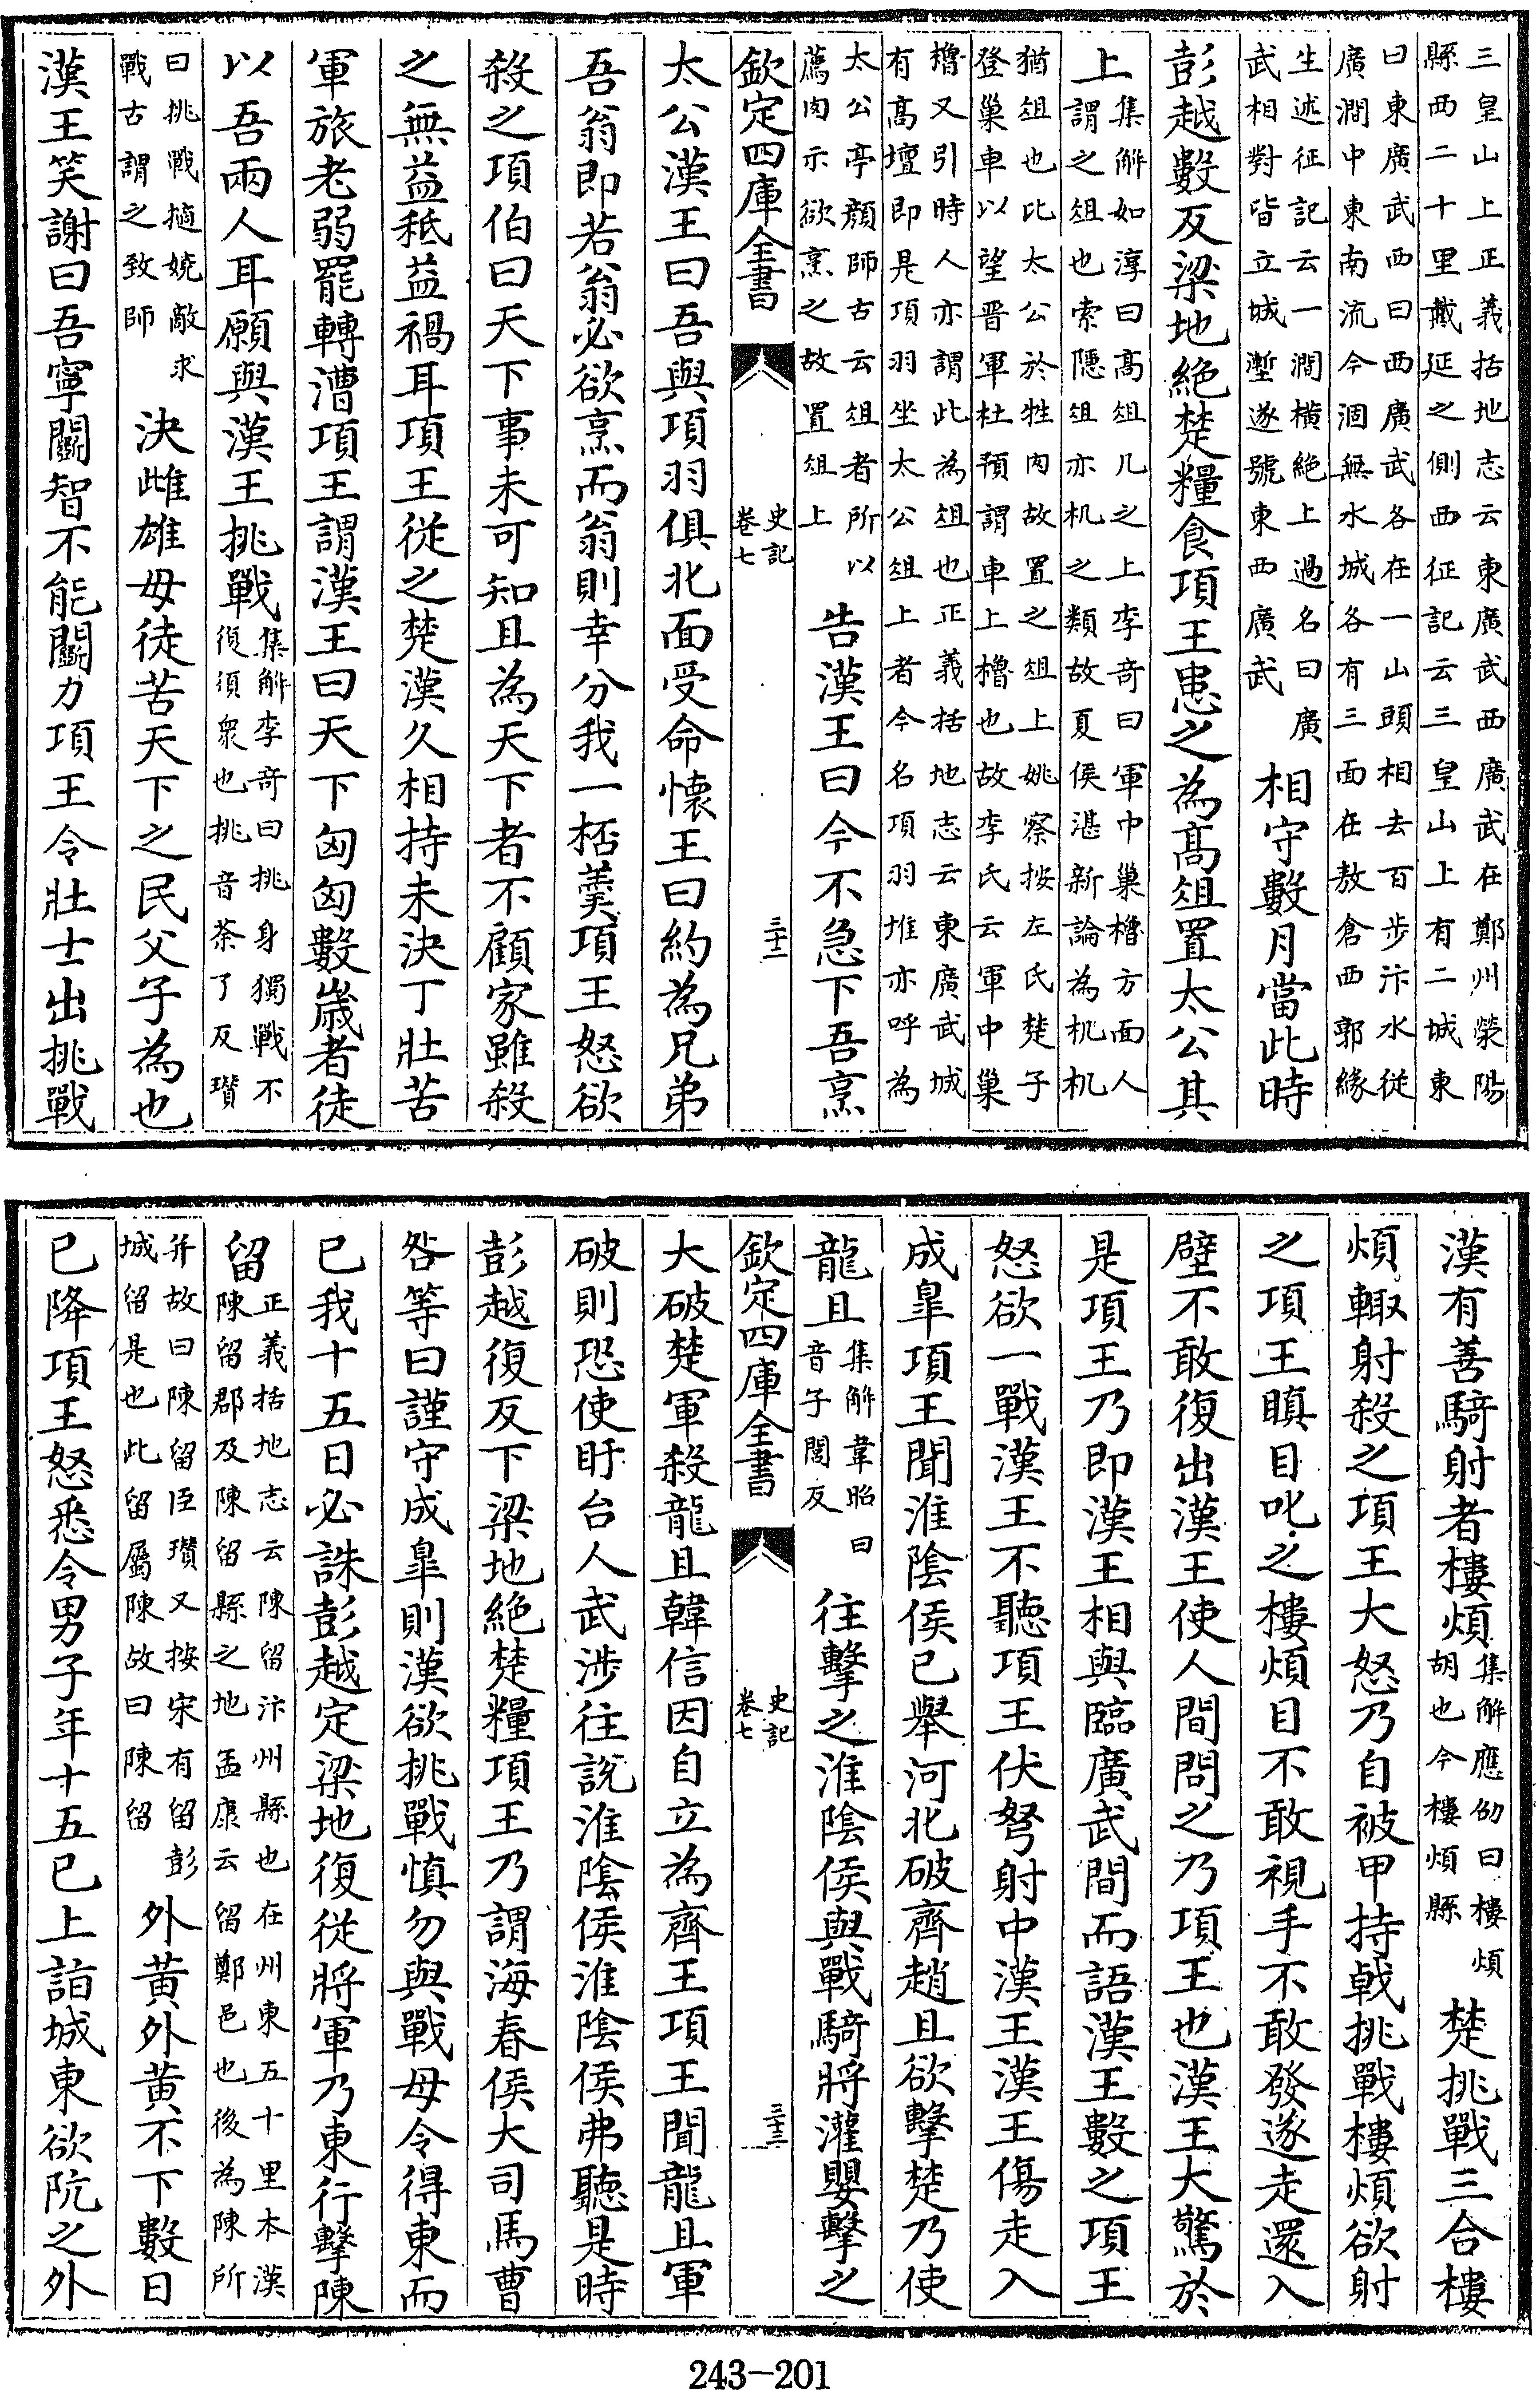 三皇山上正義括地志云東廣武西廣武在鄭州滎陽
縣西二十里戴延之側西征記云三皇山上有二城東
曰東廣武西曰西廣武各在一山頭相去百步汴水從
廣澗中東南流今涸無水城各有三面在敖倉西郭緣
生述征記云一澗横絶上過名曰廣
武相對皆立城壍遂號東西廣武
相守數月當此時
彭越數反梁地絶楚糧食項王患之為髙俎置太公其
上
集解如淳曰髙俎几之上李竒曰軍中巢櫓方面人
謂之俎也索隱俎亦机之類故夏侯湛新論為机机
猶俎也比太公於牲肉故置之俎上姚察按左氏楚子
登巢車以望晋軍杜預謂車上櫓也故李氏云軍中巢
櫓又引時人亦謂此為俎也正義括地志云東廣武城
有髙壇即是項羽坐太公俎上者今名項羽堆亦呼為
太公亭顔師古云俎者所以
薦肉示欲烹之故置俎上
告漢王曰今不急下吾烹
欽定四庫全書
史記
卷七
三十二
太公漢王曰吾與項羽俱北面受命懷王曰約為兄弟
吾翁即若翁必欲烹而翁則幸分我一桮羹項王怒欲
殺之項伯曰天下事未可知且為天下者不顧家雖殺
之無益秪益禍耳項王從之楚漢久相持未決丁壯苦
軍旅老弱罷轉漕項王謂漢王曰天下匈匈數嵗者徒
以吾兩人耳願與漢王挑戰
集解李竒曰挑身獨戰不
復須衆也挑音荼了反瓚
曰挑戰擿嬈敵求
戰古謂之致師
決雌雄毋徒苦天下之民父子為也
漢王笑謝曰吾寧鬭智不能鬭力項王令壯士出挑戰
漢有善騎射者樓煩
集解應劭曰樓煩
胡也今樓煩縣
楚挑戰三合樓
煩輙射殺之項王大怒乃自被甲持戟挑戰樓煩欲射
之項王瞋目叱之樓煩目不敢視手不敢發遂走還入
壁不敢復出漢王使人間問之乃項王也漢王大驚於
是項王乃即漢王相與臨廣武間而語漢王數之項王
怒欲一戰漢王不聽項王伏弩射中漢王漢王傷走入
成臯項王聞淮隂侯已舉河北破齊趙且欲擊楚乃使
龍且
集解韋昭曰
音子閭反
往擊之淮隂侯與戰騎將灌嬰擊之
欽定四庫全書
史記
卷七
三十三
大破楚軍殺龍且韓信因自立為齊王項王聞龍且軍
破則恐使盱台人武渉往説淮隂侯淮隂侯弗聽是時
彭越復反下梁地絶楚糧項王乃謂海春侯大司馬曹
咎等曰謹守成臯則漢欲挑戰慎勿與戰毋令得東而
已我十五日必誅彭越定梁地復從將軍乃東行擊陳
留
正義括地志云陳留汴州縣也在州東五十里本漢
陳留郡及陳留縣之地孟康云留鄭邑也後為陳所
并故曰陳留臣瓚又按宋有留彭
城留是也此留屬陳故曰陳留
外黄外黄不下數日
已降項王怒悉令男子年十五已上詣城東欲阬之外
243-201